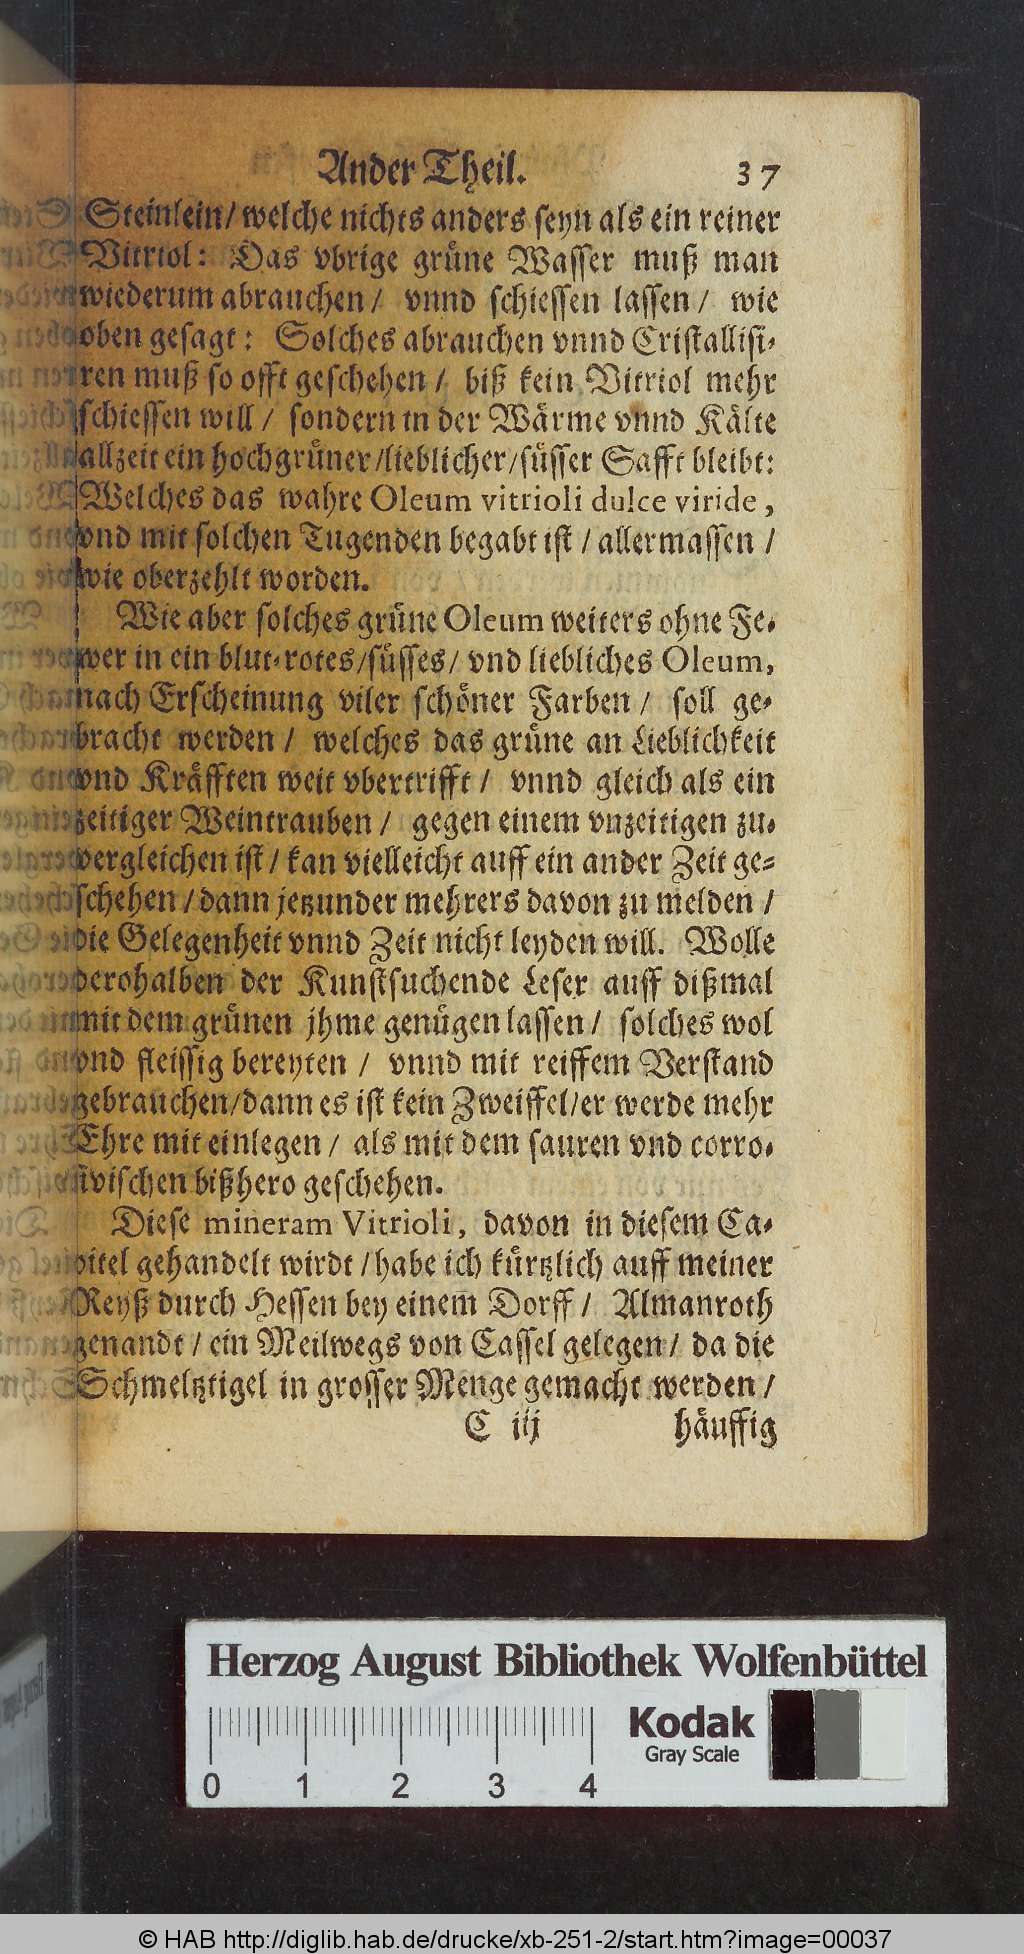 Ander Theil. 37
Steinlein/ welche nichts anders seyn als ein reiner
Vitriol: Das vbrige grüne Wasser muß man
wiederum abrauchen/ vnnd schiessen lassen/ wie
oben gesagt: Solches abrauchen vnnd Cristallisi-
ren muß so offt geschehen/ biß kein Vitriol mehr
schiessen will/ sondern in der Wärme vnnd Kälte
allzeit ein hochgrüner/lieblicher/süsser Safft bleibt:
Welches das wahre Oleum vitrioli dulce viride,
vnd mit solchen Tugenden begabt ist/ allermassen/
wie oberzehlt worden.
Wie aber solches grüne Oleum weiters ohne Fe-
wer in ein blut-rotes/süsses/ vnd liebliches Oleum,
nach Erscheinung viler schöner Farben/ soll ge-
bracht werden/ welches das grüne an Lieblichkeit
vnd Kräfften weit vbertrifft/ vnnd gleich als ein
zeitiger Weintrauben/ gegen einem vnzeitigen zu-
vergleichen ist/ kan vielleicht auff ein ander Zeit ge-
schehen/ dann jetzunder mehrers davon zu melden/
die Gelegenheit vnnd Zeit nicht leyden will. Wolle
derohalben der Kunstsuchende Leser auff dißmal
mit dem grünen jhme genügen lassen/ solches wol
vnd fleissig bereyten/ vnnd mit reiffem Verstand
gebrauchen/dann es ist kein Zweiffel/er werde mehr
Ehre mit einlegen/ als mit dem sauren vnd corro-
sivischen bißhero geschehen.
Diese mineram Vitrioli, davon in diesem Ca-
pitel gehandelt wirdt/ habe ich kürtzlich auff meiner
Reyß durch Hessen bey einem Dorff/ Almanroth
genandt/ ein Meilwegs von Cassel gelegen/ da die
Schmeltztigel in grosser Menge gemacht werden/
C iij häuffig
Herzog August Bibliothek Wolfenbüttel
Kodak
Gray Scale
0 1 2 3 4
© HAB http://diglib.hab.de/drucke/xb-251-2/start.htm?image=00037